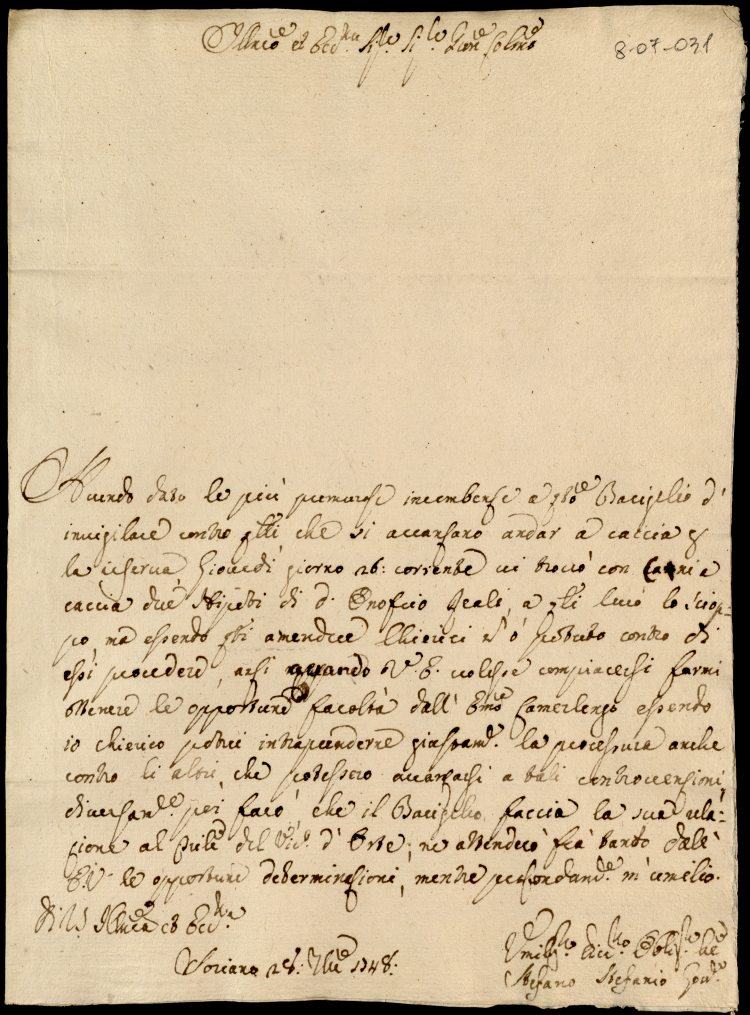 Illmo et Ecc.mo Sig.re Sig.re Prone Colmo
8-07-031
Avendo dato le più premurose incombenze a q.sto Bargello d'
invigilare contro q.lli che si avanzano andar a caccia p
la riserva, Giovedì giorno 26: corrente vi trovò con Canni a
caccia due Nipoti di D. Onofrio Reali, a q.lli levò lo sciop-
po, ma essendo q.sti amendue Chierici n' ò potuto contro di
essi procedere, anzi quando V. E. volesse compiacersi farmi
ottenere le opportune facoltà dall' Emo Camerlengo essendo
io chierico potrei intraprenderne giustam.te la processura anche
contro li altri che potessero avanzarsi a tali controvenzioni,
diversam.te poi farò, che il Bargello faccia la sua rela-
zione al Trible del Vic.o d' Orte; ne attenderò frà tanto dall'
E. V. le opportune determinazioni, mentre profondam.te m' umilio.
Di V. E. Illma ed Ecc.ma
Soriano 28: 1748:
Umiliss.mo Dev.mo Obl.mo Se.re
Stefano Stefanio Gov.re